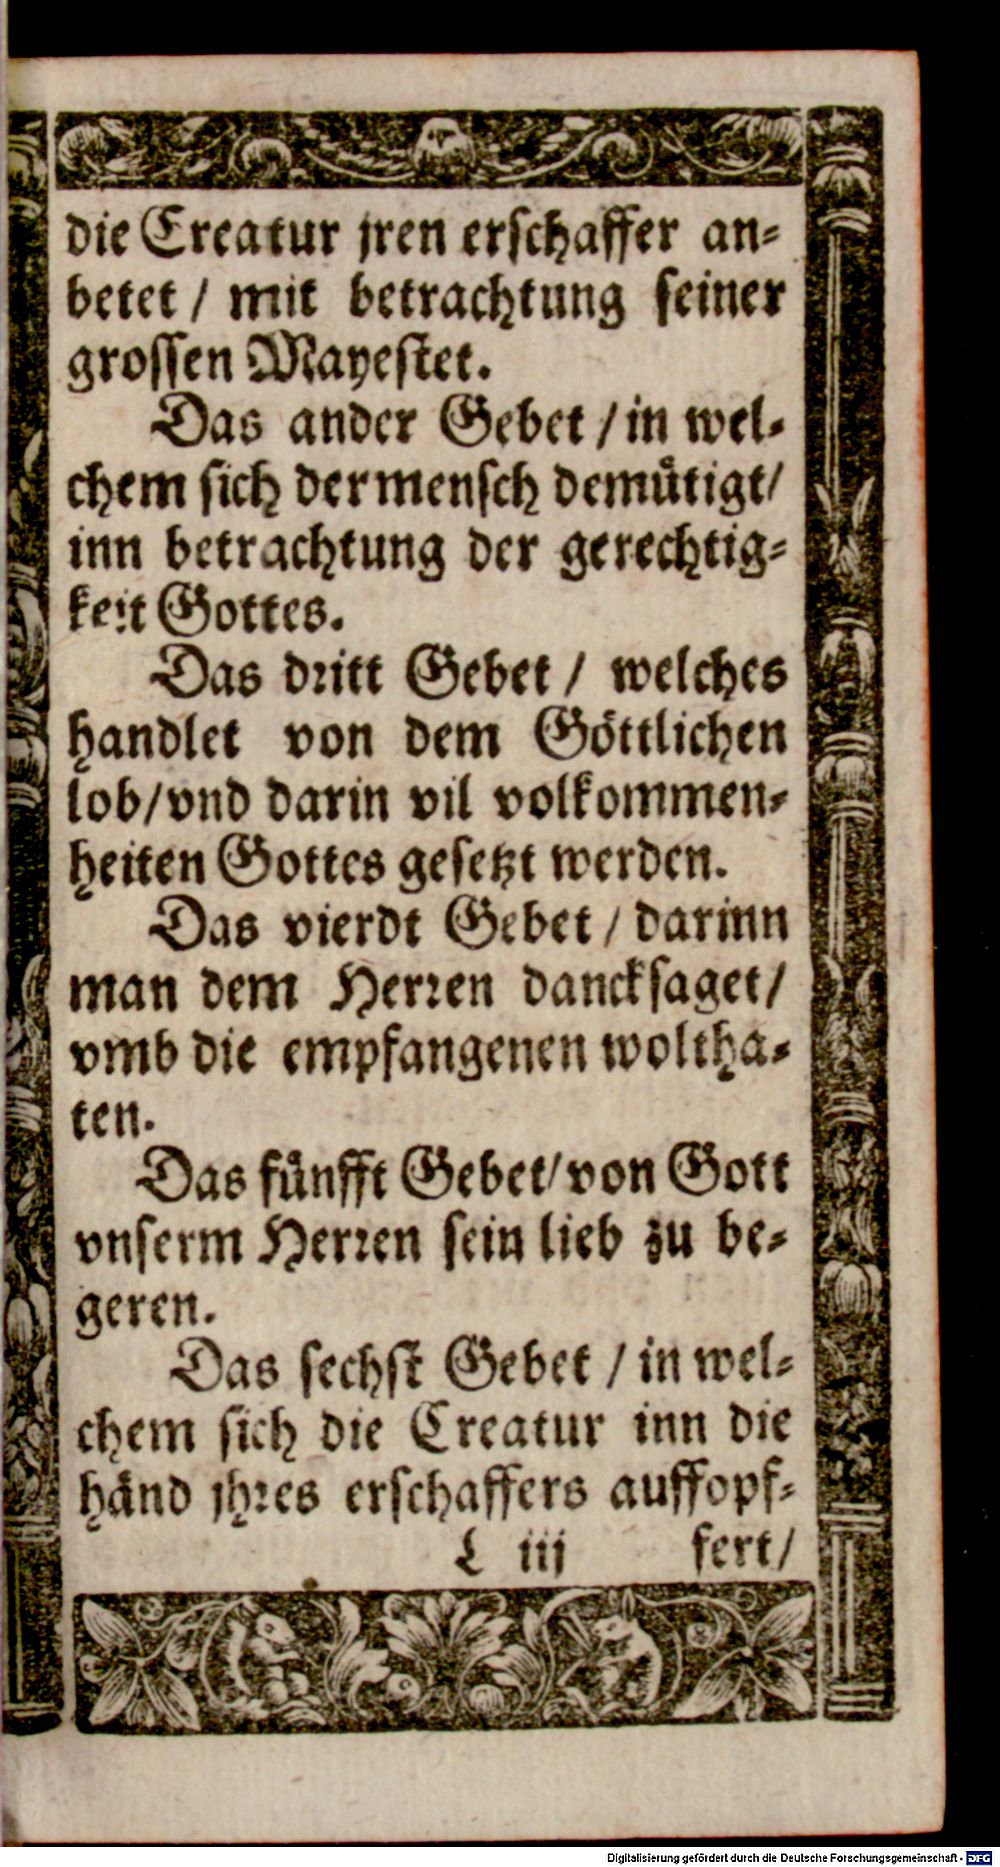 die Creatur jren erschaffer an-
betet / mit betrachtung seiner
grossen Mayestet.
Das ander Gebet / in wel-
chem sich der mensch demütigt /
inn betrachtung der gerechtig-
keit Gottes.
Das dritt Gebet / welches
handlet von dem Göttlichen
lob / vnd darin vil volkommen-
heiten Gottes gesetzt werden.
Das vierdt Gebet / darinn
man dem Herren dancksaget /
vmb die empfangenen woltha-
ten.
Das fünfft Gebet / von Gott
vnserm Herren sein lieb zu be-
geren.
Das sechst Gebet / in wel-
chem sich die Creatur inn die
händ jhres erschaffers auffopf-
L iij fert /
Digitalisierung gefördert durch die Deutsche Forschungsgemeinschaft - DFG